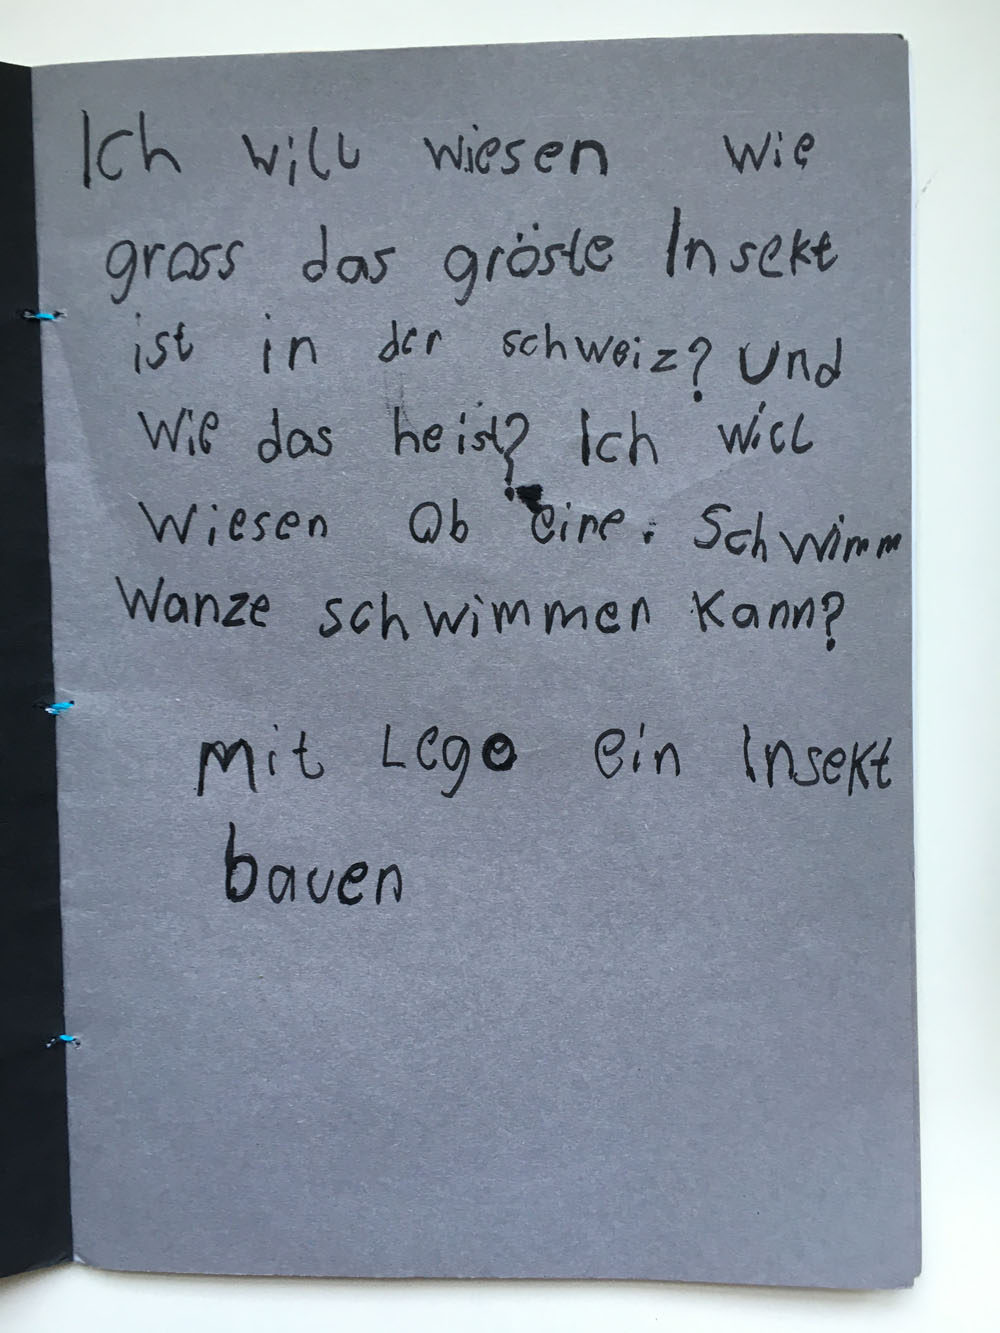 Ich will wiesen wie
gross das gröste Insekt
ist in der schweiz? Und
wie das heist? Ich will
wiesen Ob eine. Schwimm
Wanze schwimmen kann?
mit Lego ein Insekt
bauen